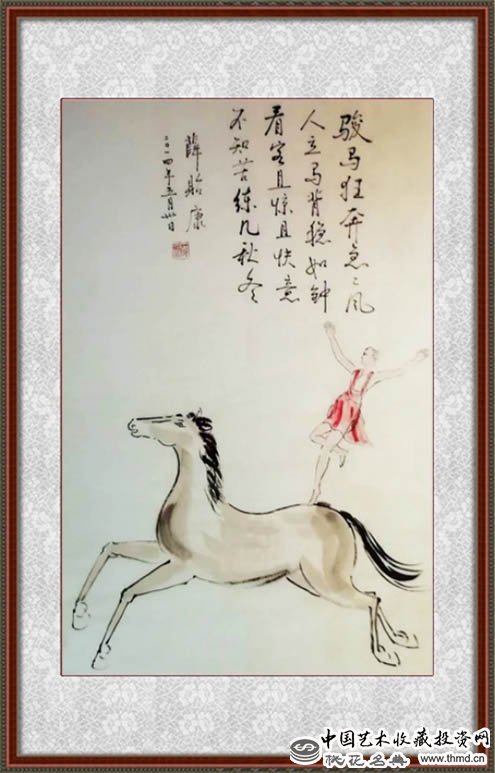 骏马狂奔急〻风
人立马背稳如钟
看客且惊且快意
不知苦练几秋冬
薛贻康
二〇一四年五月卅日
中国艺术收藏投资网
www.thmd.cn